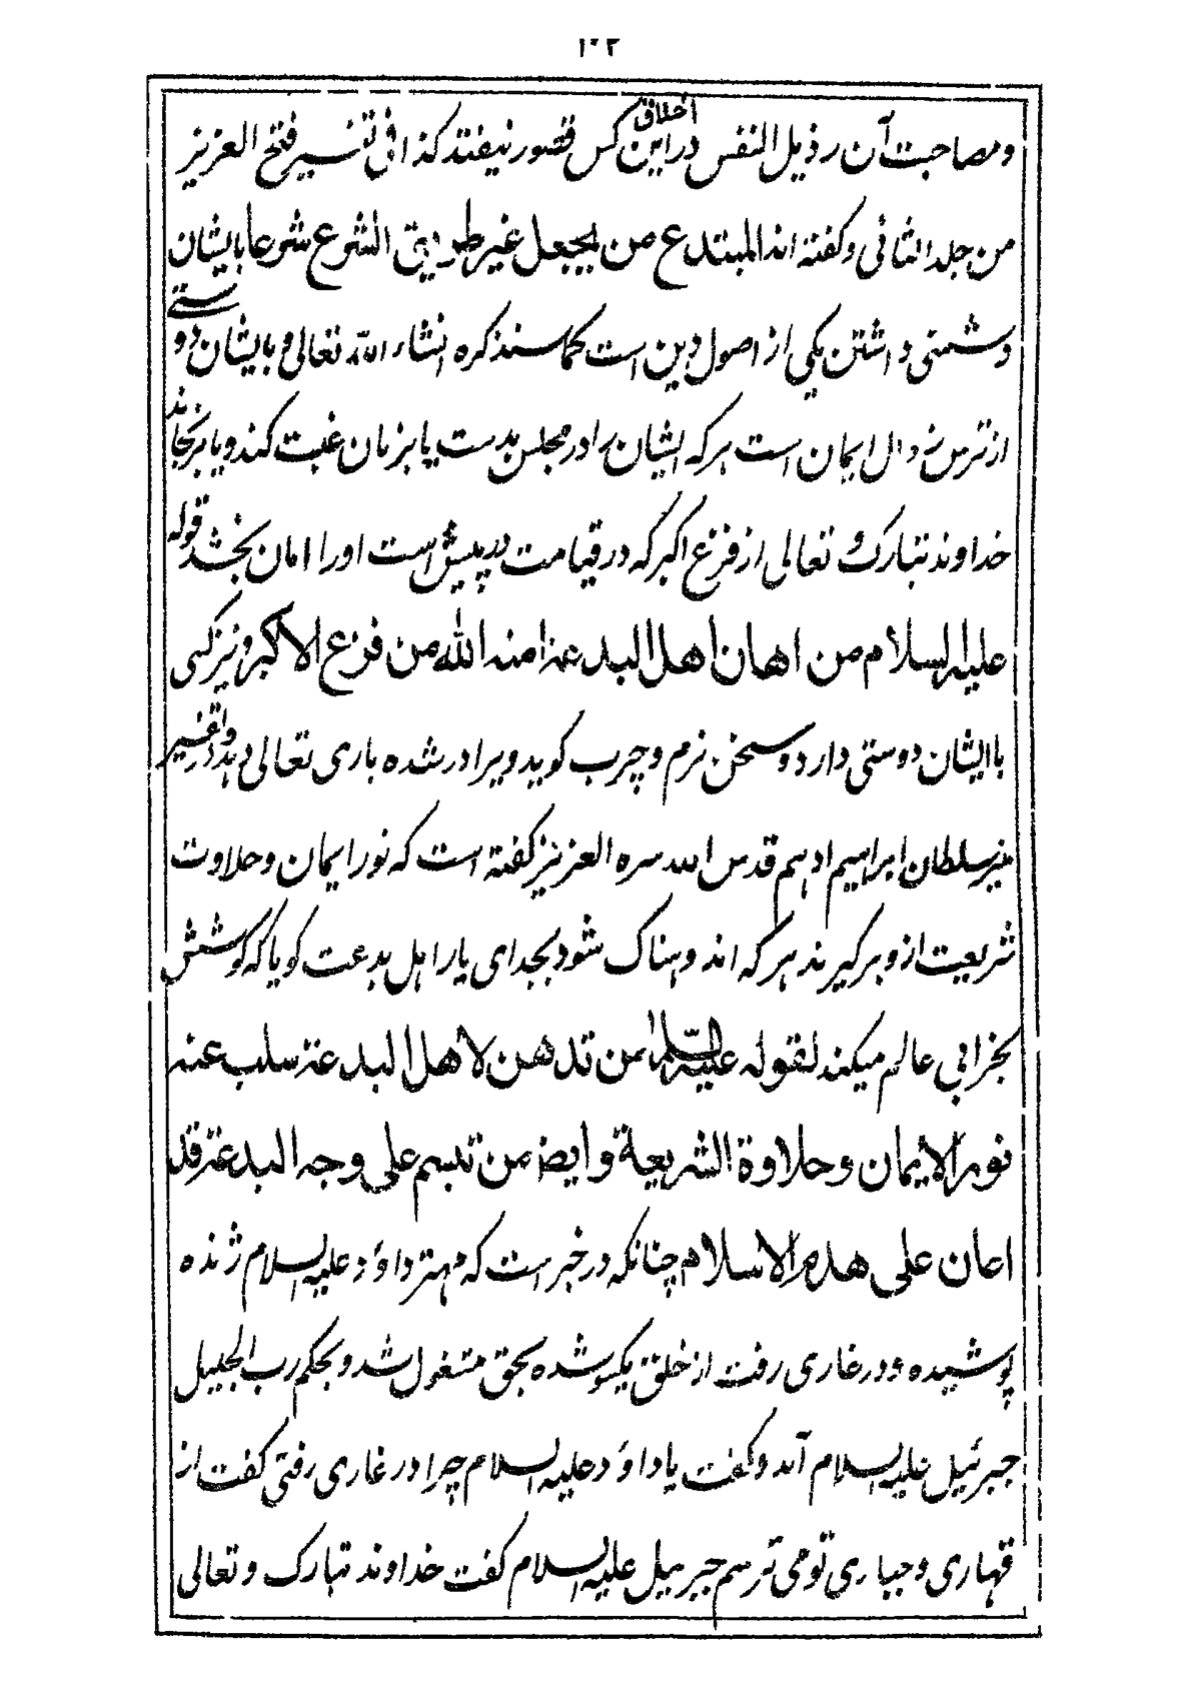 ۱۰۲
ومصاحبت آن رذیل النفس در اخلاق این کس قصور نیفتد کذا فی تفسیر فتح العزیز
من جلد الثانی و گفته اند المبتدع من یجعل غیر طریق الشرع شرعا بایشان
دشمنی داشتن یکی از اصول دین است کما سنذکره انشاء الله تعالی و بایشان دوستی
از ترس زوال ایمان است هرکه ایشان را در مجلس بدست یا بزبان غیبت کند و یا برنجاند
خداوند تبارک و تعالی از فزع اکبر که در قیامت در پیش است اورا امان بخشد قوله
علیه السلام من اهان اهل البدعة امنه الله من فزع الاکبر و نیز کسی
با ایشان دوستی دارد و سخن نرم و چرب گوید ویرا در شده باری تعالی بدهد و در تفسیر
میر سلطان ابراهیم ادهم قدس الله سره العزیز گفته است که نور ایمان و حلاوت
شریعت ازو برگیرند هرکه اندوهناک شود بجدای یار اهل بدعت گویا که کوشش
بخرابی عالم میکند لقوله علیه السلام من تدهن لاهل البدعة سلب عنه
نور الایمان وحلاوة الشریعة وایضا من تبسم علی وجه البدعة قد
اعان علی هدم الاسلام چنانکه در خبر است که مهتر داؤد علیه السلام ژنده
پوشیده و در غاری رفت از خلق یکسو شده بحق مشغول شد و بحکم رب الجلیل
جبرئیل علیه السلام آمد و گفت یا داؤد علیه السلام چرا در غاری رفتی گفت از
قهاری و جباری تو می ترسم جبرئیل علیه السلام گفت خداوند تبارک و تعالی